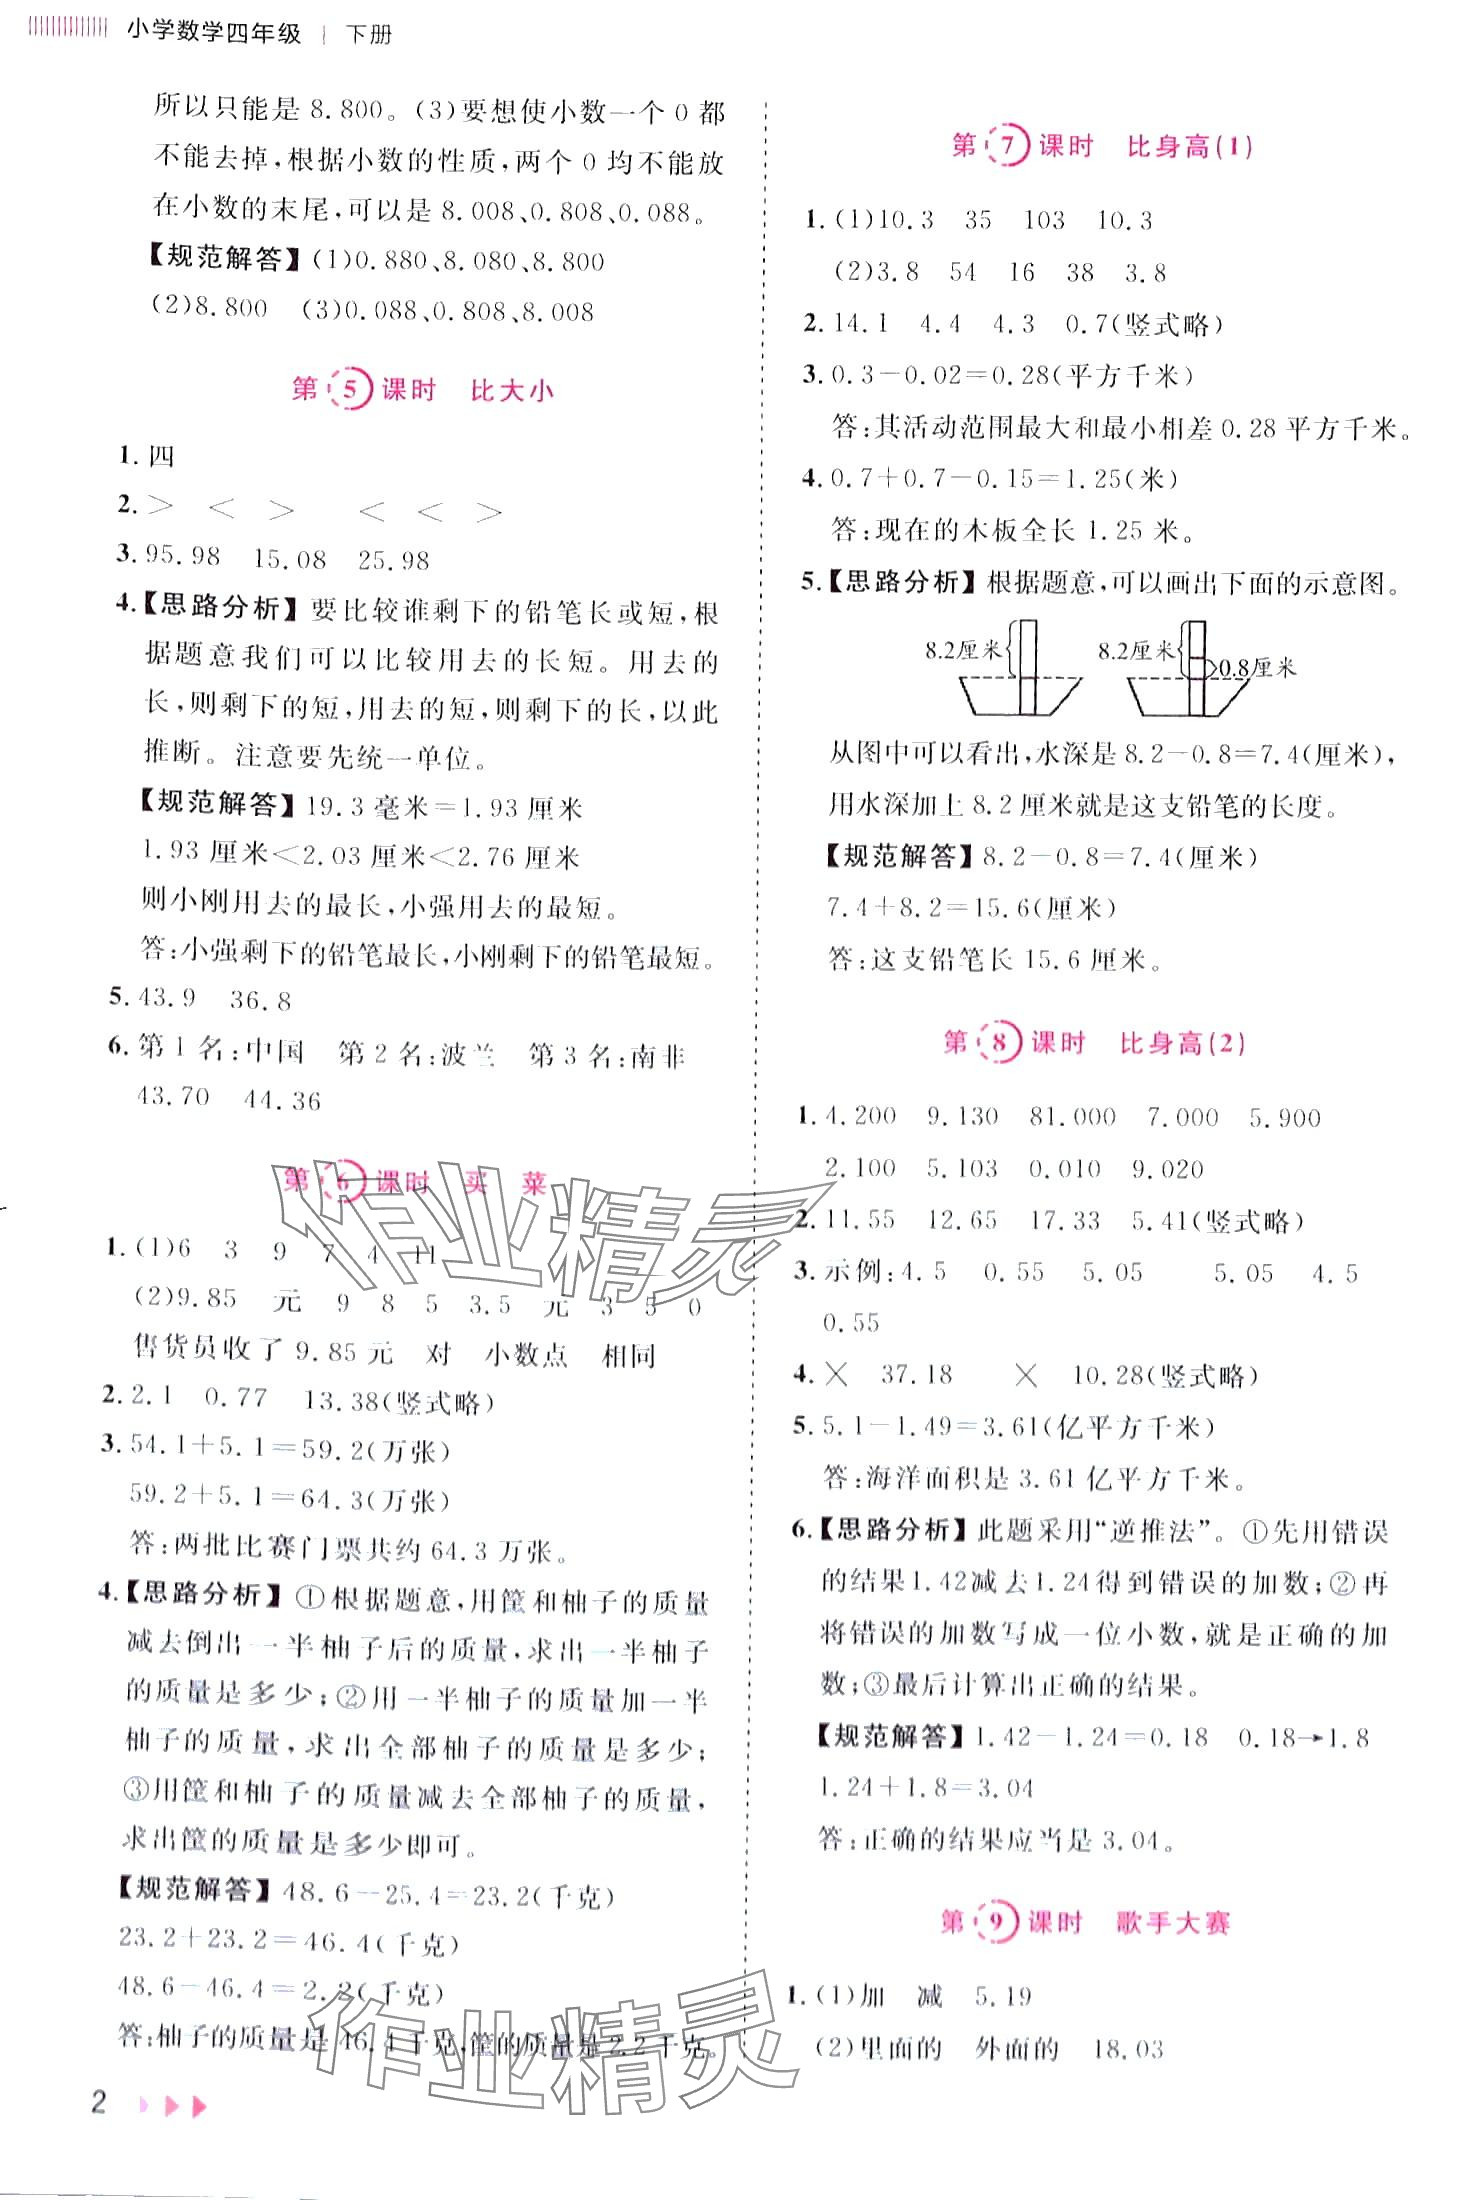 小学数学四年级 | 下册
所以只能是8.800。(3)要想使小数一个0都
不能去掉,根据小数的性质,两个0均不能放
在小数的末尾,可以是8.008、0.808、0.088。
【规范解答】(1)0.880、8.080、8.800
(2)8.800 (3)0.088、0.808、8.008
第5课时 比大小
1.四
2.> < > < < >
3.95.98 15.08 25.98
4.【思路分析】要比较谁剩下的铅笔长或短,根
据题意我们可以比较用去的长短。用去的
长,则剩下的短,用去的短,则剩下的长,以此
推断。注意要先统一单位。
【规范解答】19.3毫米=1.93厘米
1.93厘米<2.03厘米<2.76厘米
则小刚用去的最长,小强用去的最短。
答:小强剩下的铅笔最长,小刚剩下的铅笔最短。
5.43.9 36.8
6.第1名:中国 第2名:波兰 第3名:南非
43.70 44.36
第6课时 买 菜
1.(1)6 3 9 7 4 11
(2)9.85 元 9 8 5 3.5 元 3 5 0
售货员收了9.85元 对 小数点 相同
2.2.1 0.77 13.38(竖式略)
3.54.1+5.1=59.2(万张)
59.2+5.1=64.3(万张)
答:两批比赛门票共约64.3万张。
4.【思路分析】①根据题意,用筐和柚子的质量
减去倒出一半柚子后的质量,求出一半柚子
的质量是多少;②用一半柚子的质量加一半
柚子的质量,求出全部柚子的质量是多少;
③用筐和柚子的质量减去全部柚子的质量,
求出筐的质量是多少即可。
【规范解答】48.6-25.4=23.2(千克)
23.2+23.2=46.4(千克)
48.6-46.4=2.2(千克)
答:柚子的质量是46.4千克,筐的质量是2.2千克。
2
第7课时 比身高(1)
1.(1)10.3 35 103 10.3
(2)3.8 54 16 38 3.8
2.14.1 4.4 4.3 0.7(竖式略)
3.0.3-0.02=0.28(平方千米)
答:其活动范围最大和最小相差0.28平方千米。
4.0.7+0.7-0.15=1.25(米)
答:现在的木板全长1.25米。
5.【思路分析】根据题意,可以画出下面的示意图。
8.2厘米 8.2厘米 0.8厘米
从图中可以看出,水深是8.2-0.8=7.4(厘米),
用水深加上8.2厘米就是这支铅笔的长度。
【规范解答】8.2-0.8=7.4(厘米)
7.4+8.2=15.6(厘米)
答:这支铅笔长15.6厘米。
第8课时 比身高(2)
1.4.200 9.130 81.000 7.000 5.900
2.100 5.103 0.010 9.020
2.11.55 12.65 17.33 5.41(竖式略)
3.示例:4.5 0.55 5.05 5.05 4.5
0.55
4.× 37.18 × 10.28(竖式略)
5.5.1-1.49=3.61(亿平方千米)
答:海洋面积是3.61亿平方千米。
6.【思路分析】此题采用“逆推法”。①先用错误
的结果1.42减去1.24得到错误的加数;②再
将错误的加数写成一位小数,就是正确的加
数;③最后计算出正确的结果。
【规范解答】1.42-1.24=0.18 0.18→1.8
1.24+1.8=3.04
答:正确的结果应当是3.04。
第9课时 歌手大赛
1.(1)加 减 5.19
(2)里面的 外面的 18.03
作业精灵
作业精灵